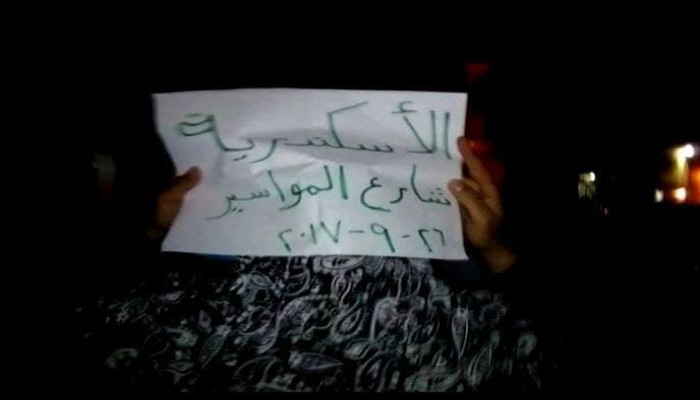 الأسكندرية
شارع المواسير
٢٦-٩-٢٠١٧